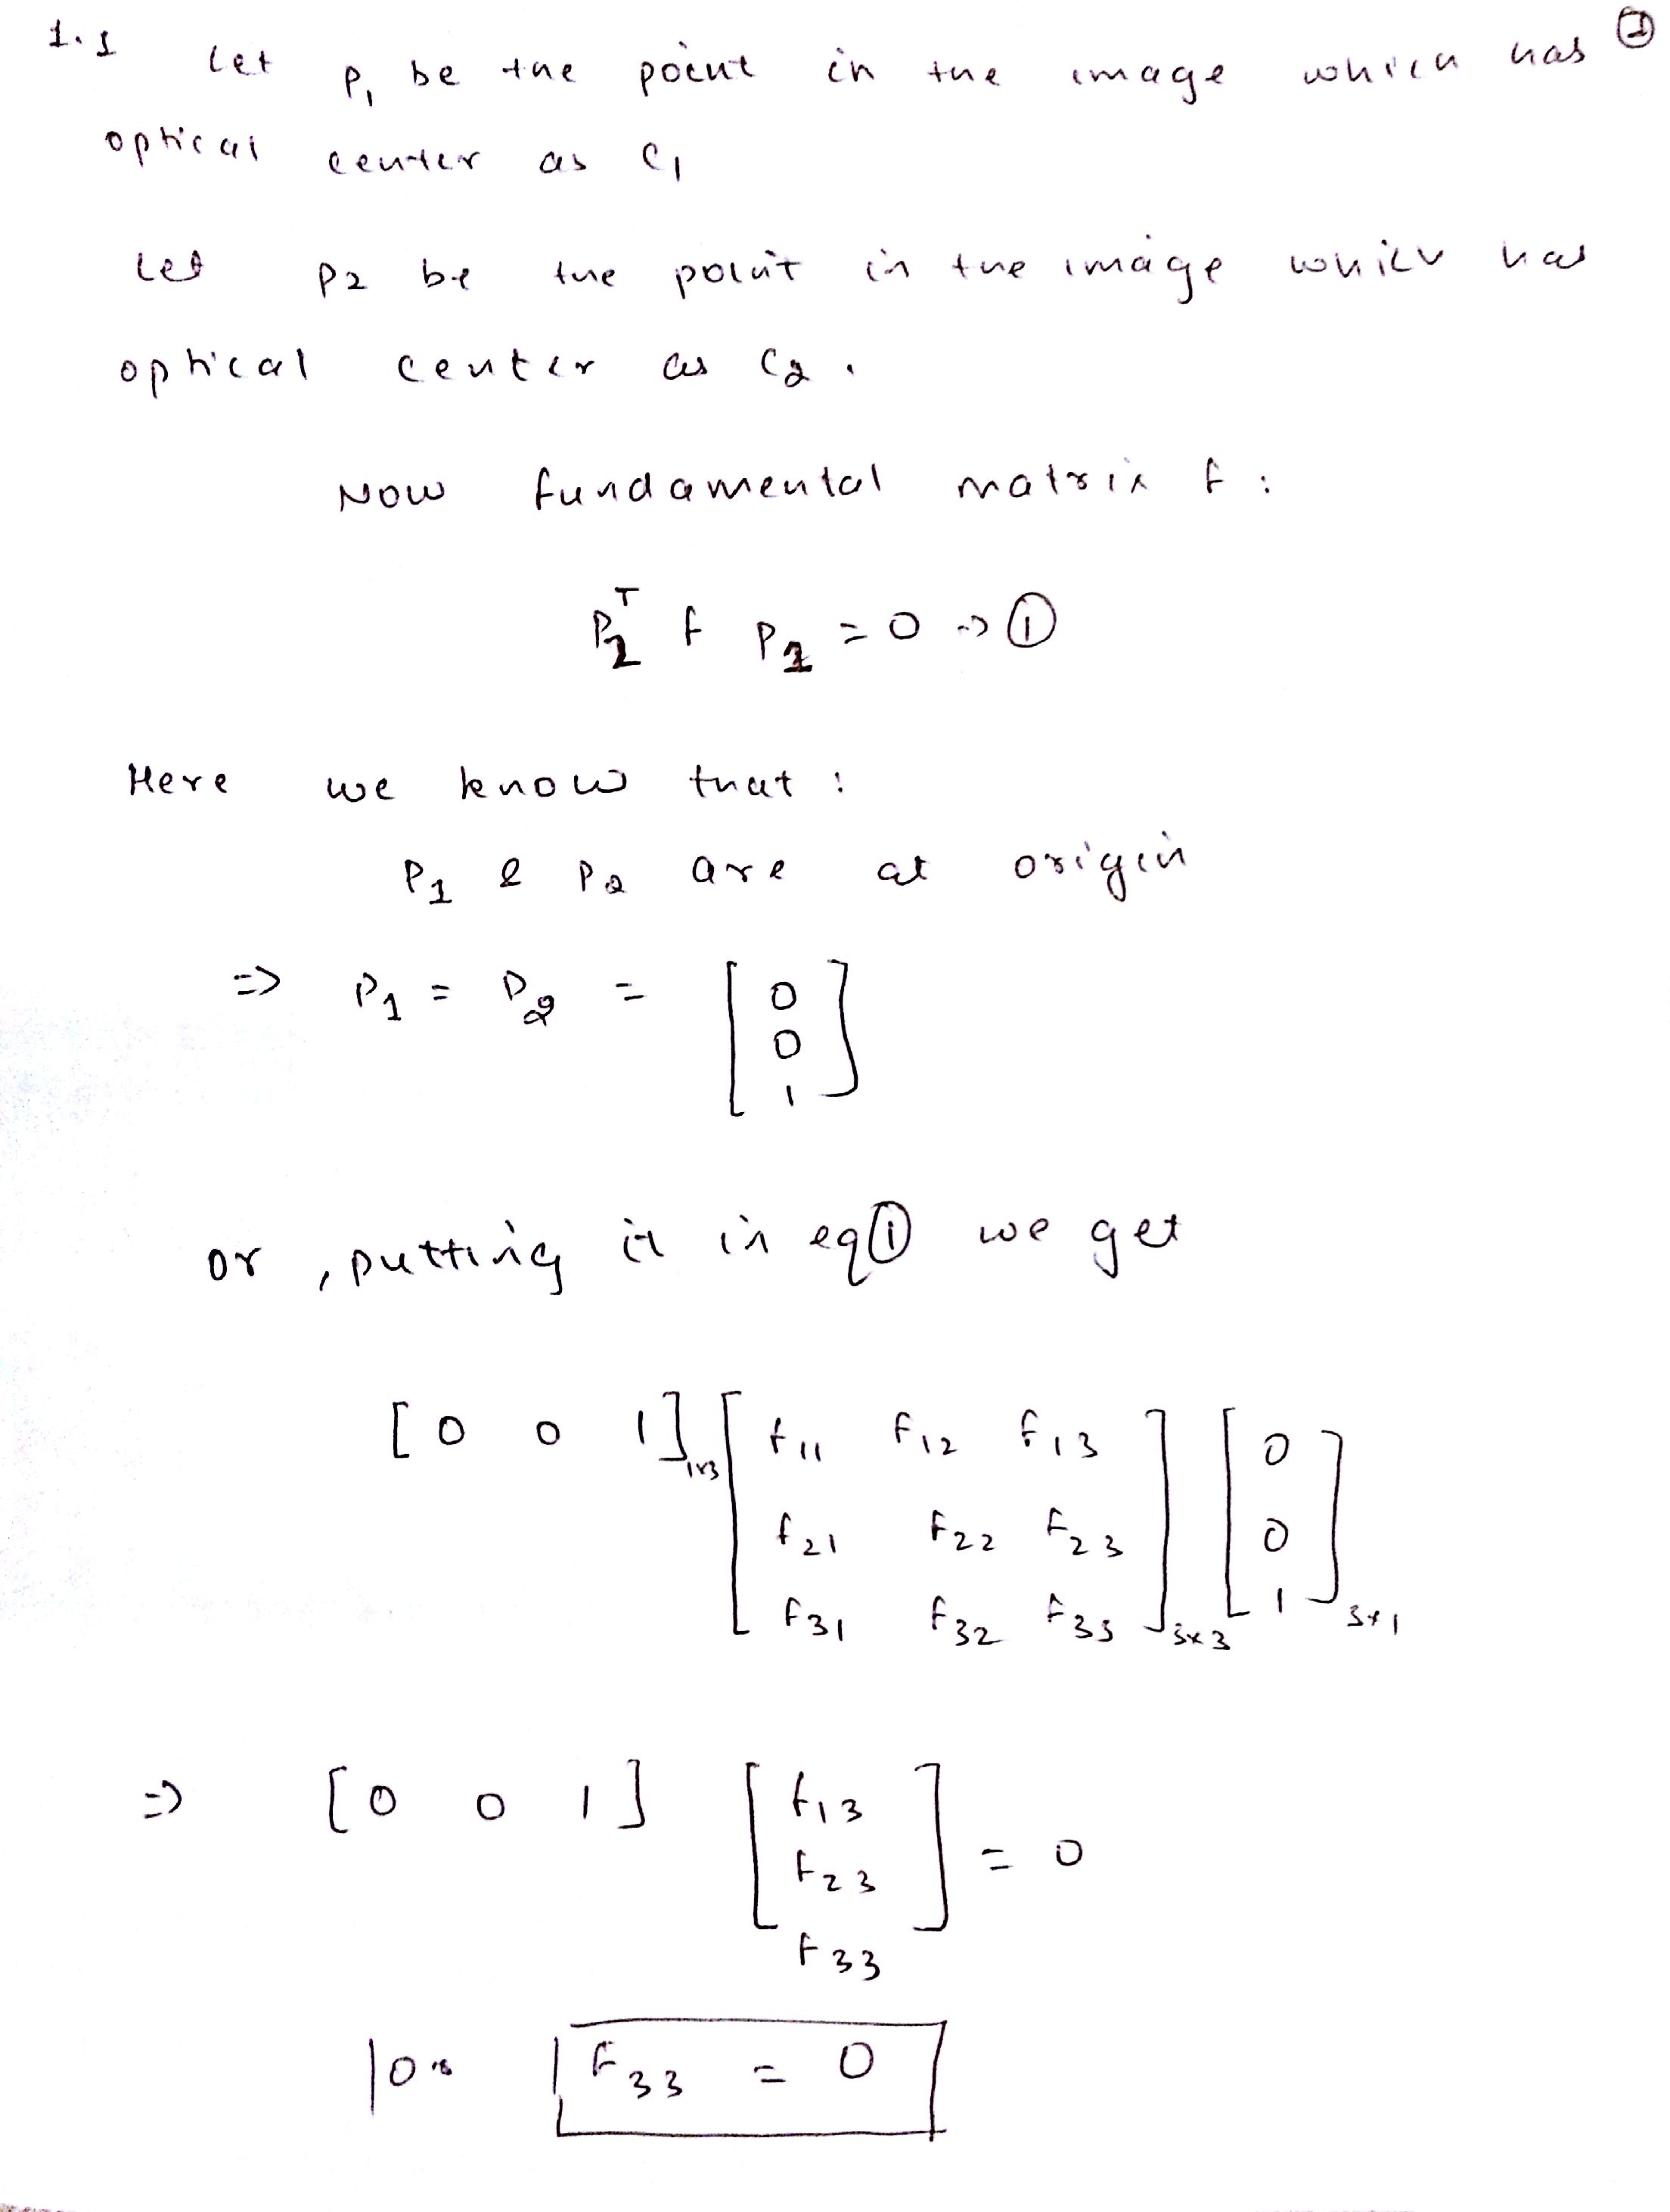 1.1 Let P1 be the point in the image which has ①
optical center as C1
Let P2 be the point in the image which has
optical center as C2.
Now fundamental matrix F :
P2^T F P1 = 0 -> ①
Here we know that :
P1 & P2 are at origin
=> P1 = P2 = [ 0
0
1 ]
or , putting it in eq ① we get
[ 0 0 1 ]1x3 [ F11 F12 F13 ] [ 0 ]
F21 F22 F23 0
F31 F32 F33 3x3 1 3x1
=> [ 0 0 1 ] [ F13
F23 ] = 0
F33
or F33 = 0